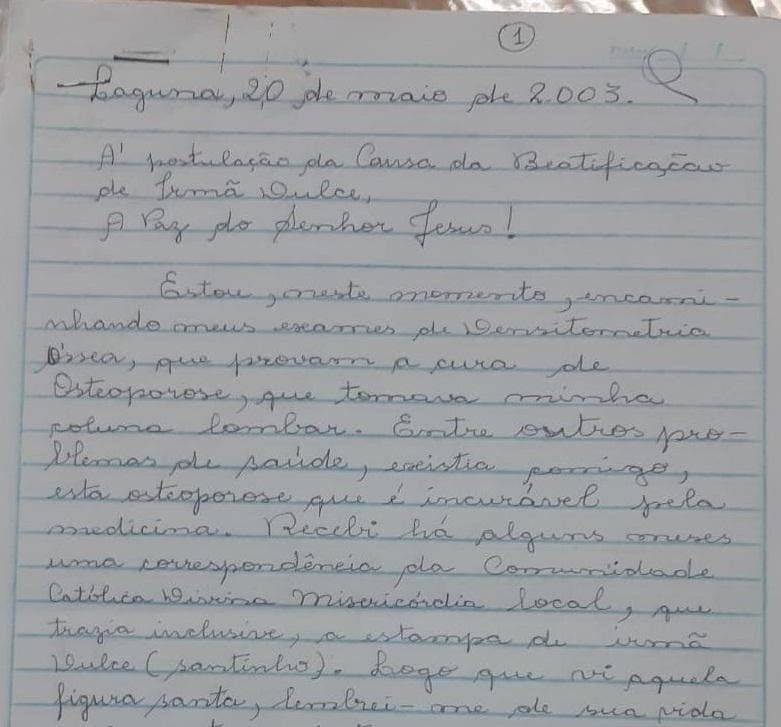 1
Laguna, 20 de maio de 2.003.
A' postulação da Causa da Beatificação
de Irmã Dulce,
A Paz do Senhor Jesus!
Estou, neste momento, encami-
nhando meus exames de Densitometria
Óssea, que provam a cura de
Osteoporose, que tomava minha
coluna lombar. Entre outros pro-
blemas de saúde, existia comigo,
esta osteoporose que é incurável pela
medicina. Recebi há alguns meses
uma correspondência da Comunidade
Católica Divina Misericórdia local, que
trazia inclusive, a estampa de irmã
Dulce (santinho). Logo que vi aquela
figura santa, lembrei-me de sua vida